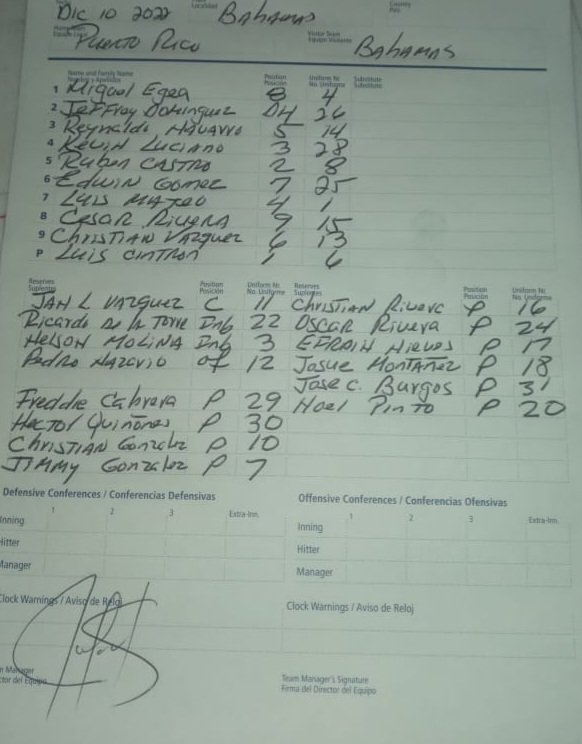 Dic 10 2022 Localidad BAHAMAS Country País
Equipo Local PUERTO RICO Visitor Team Equipo Visitante BAHAMAS
Name and Family Name Nombre y Apellidos Position Posición Uniform Nr. No. Uniforme Substitute Substitute
1 Miguel Egea 8 4
2 Jeffrey Dominguez DH 26
3 Reynaldo NAVARRO 5 14
4 Kevin Luciano 3 28
5 Ruben CASTRO 2 8
6 Edwin Gomez 7 25
7 Luis MATEO 4 1
8 Cesar RIVERA 9 15
9 Christian Vazquez 6 13
P Luis Cintron 1 6
Reserves Suplentes Position Posición Uniform Nr. No. Uniforme Reserves Suplentes Position Posición Uniform Nr. No. Uniforme
JAN L VAZQUEZ C 11 Christian Rivera P 16
Ricardo De la Torre Inf 22 OSCAR Rivera P 24
NELSON MOLINA Inf 3 EFRAIN Nieves P 17
Pedro of 12 Josue MONTAÑEZ P 18
Jose C. Burgos P 31
Freddie Cabrera P 29 Noel PINTO P 20
Hector Quiñones P 30
Christian Gonzalez P 10
JIMMY Gonzalez P 7
Defensive Conferences / Conferencias Defensivas Offensive Conferences / Conferencias Ofensivas
1 2 3 Extra-Inn. 1 2 3 Extra-Inn.
Inning Inning
Hitter Hitter
Manager Manager
Clock Warnings / Aviso de Reloj Clock Warnings / Aviso de Reloj
Manager Team Manager's Signature
del Equipo Firma del Director del Equipo